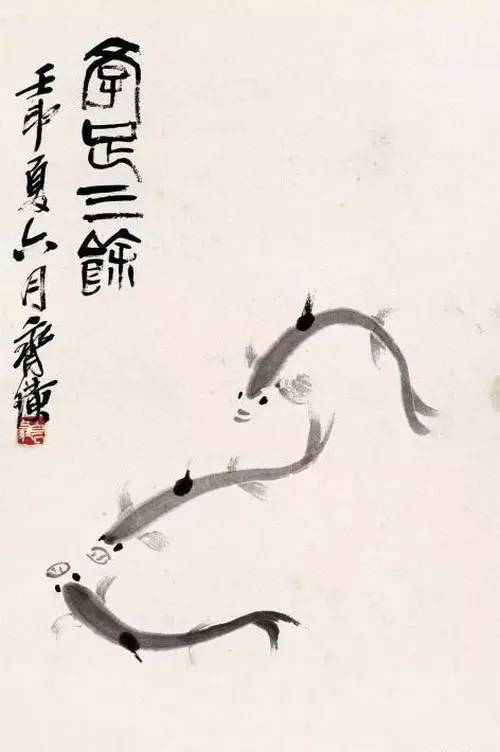 年足三餘
壬申夏六月齊璜